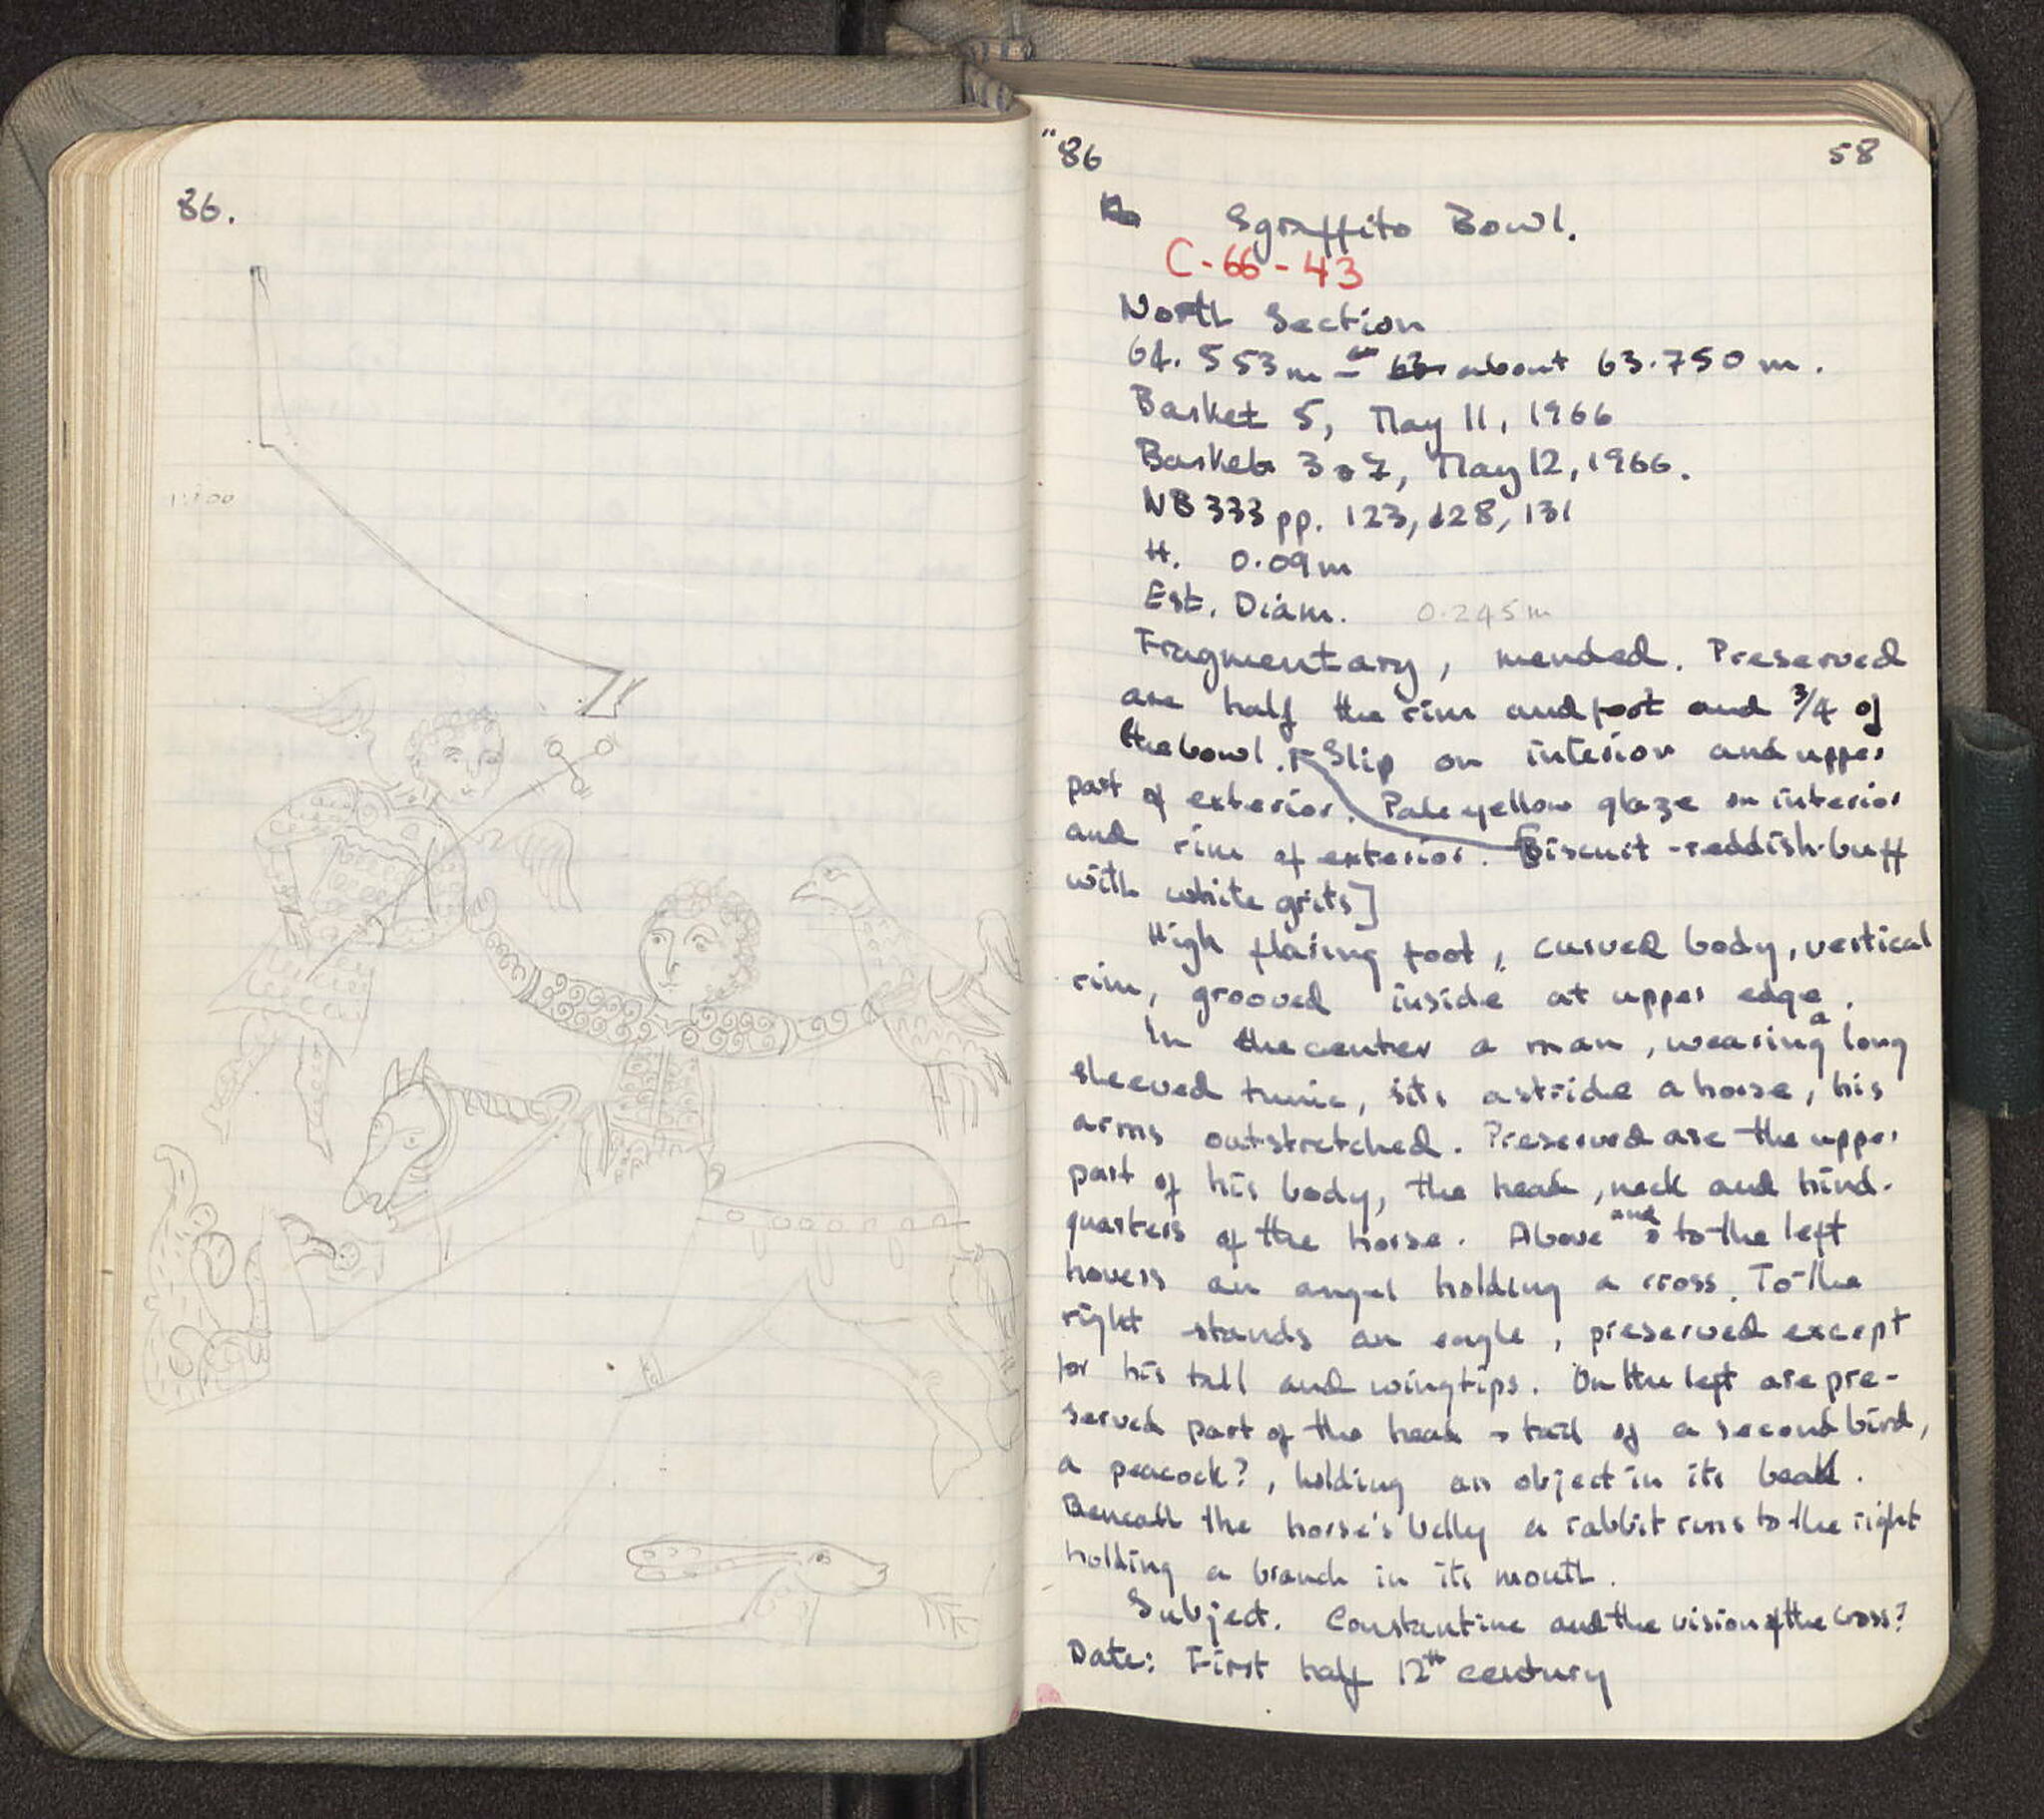 86.
"86 58
Sgraffito Bowl.
C-66-43
North Section
64.553m - about 63.750 m.
Basket 5, May 11, 1966
Baskets 3 & 7, May 12, 1966.
NB 333 pp. 123, 128, 131
H. 0.09m
Est. Diam. 0.245m
Fragmentary, mended. Preserved
are half the rim and foot and 3/4 of
the bowl. Slip on interior and upper
part of exterior. Pale yellow glaze on interior
and rim of exterior. [Biscuit - reddish-buff
with white grits]
High flaring foot, curved body, vertical
rim, grooved inside at upper edge.
In the center a man, wearing a long
sleeved tunic, sits astride a horse, his
arms outstretched. Preserved are the upper
part of his body, the head, neck and hind-
quarters of the horse. Above and to the left
hovers an angel holding a cross. To the
right stands an eagle, preserved except
for his tail and wingtips. On the left are pre-
served part of the head & tail of a second bird,
a peacock?, holding an object in its beak.
Beneath the horse's belly a rabbit runs to the right
holding a branch in its mouth.
Subject. Constantine and the vision of the Cross?
Date: First half 12th century